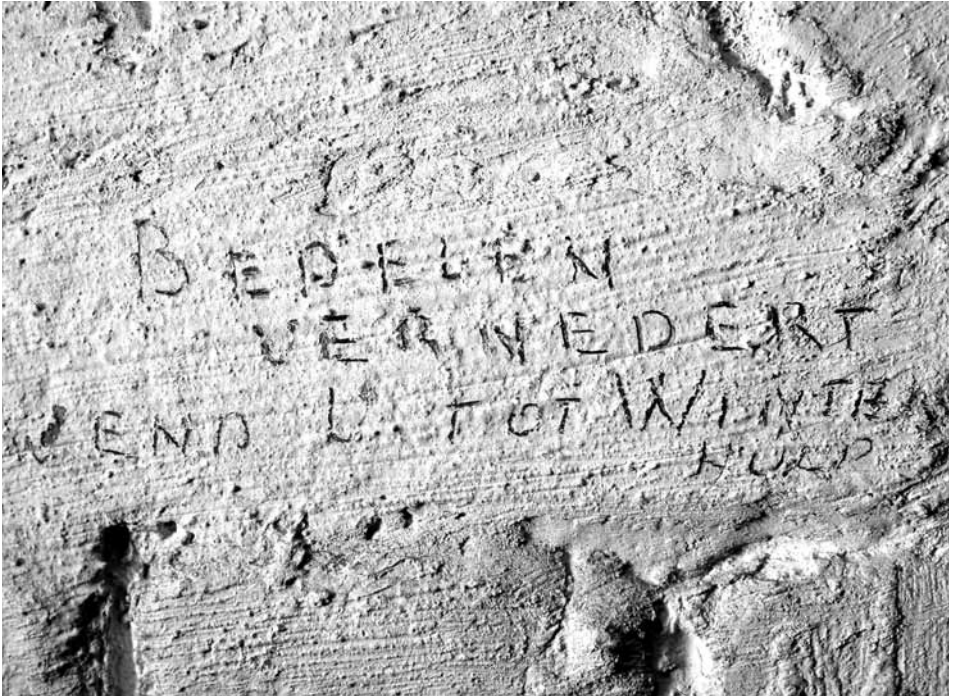 BEDELEN
VERNEDERT
WEND U TOT WINTER
HULP